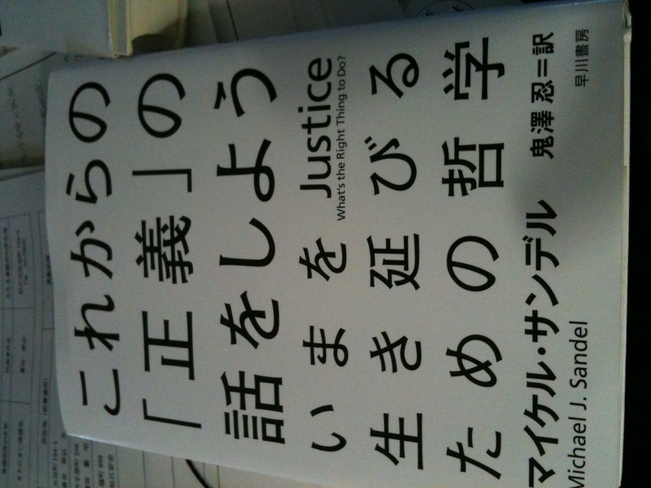 これからの
「正義」の
話をしよう
Justice
What's the Right Thing to Do?
いまを
生き延びる
ための哲学
マイケル・サンデル
Michael J. Sandel
鬼澤 忍=訳
早川書房